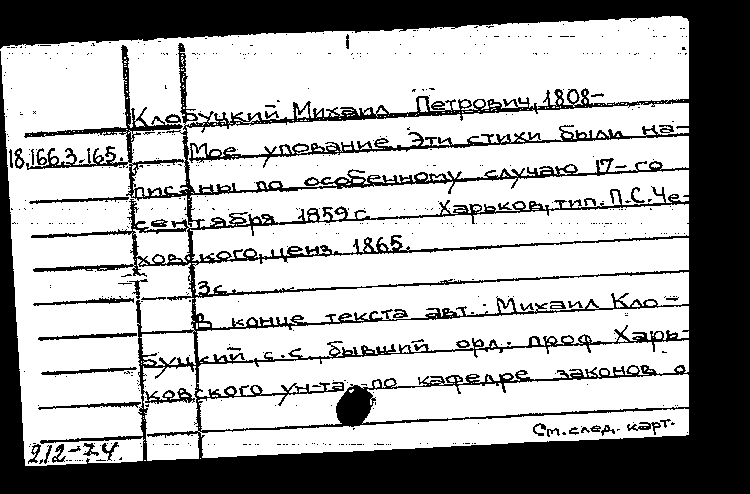 Клобуцкий, Михаил Петрович, 1808-
18.166.3.165. Мое упование. Эти стихи были на-
писаны по особенному случаю 17-го
сентября 1859 г. Харьков, тип. П.С. Че-
ховского, ценз. 1865.
3 с.
В конце текста авт.: Михаил Кло-
буцкий, с.с., бывший орд. проф. Харь-
ковского ун-та по кафедре законов о
См. след. карт.
212-74.